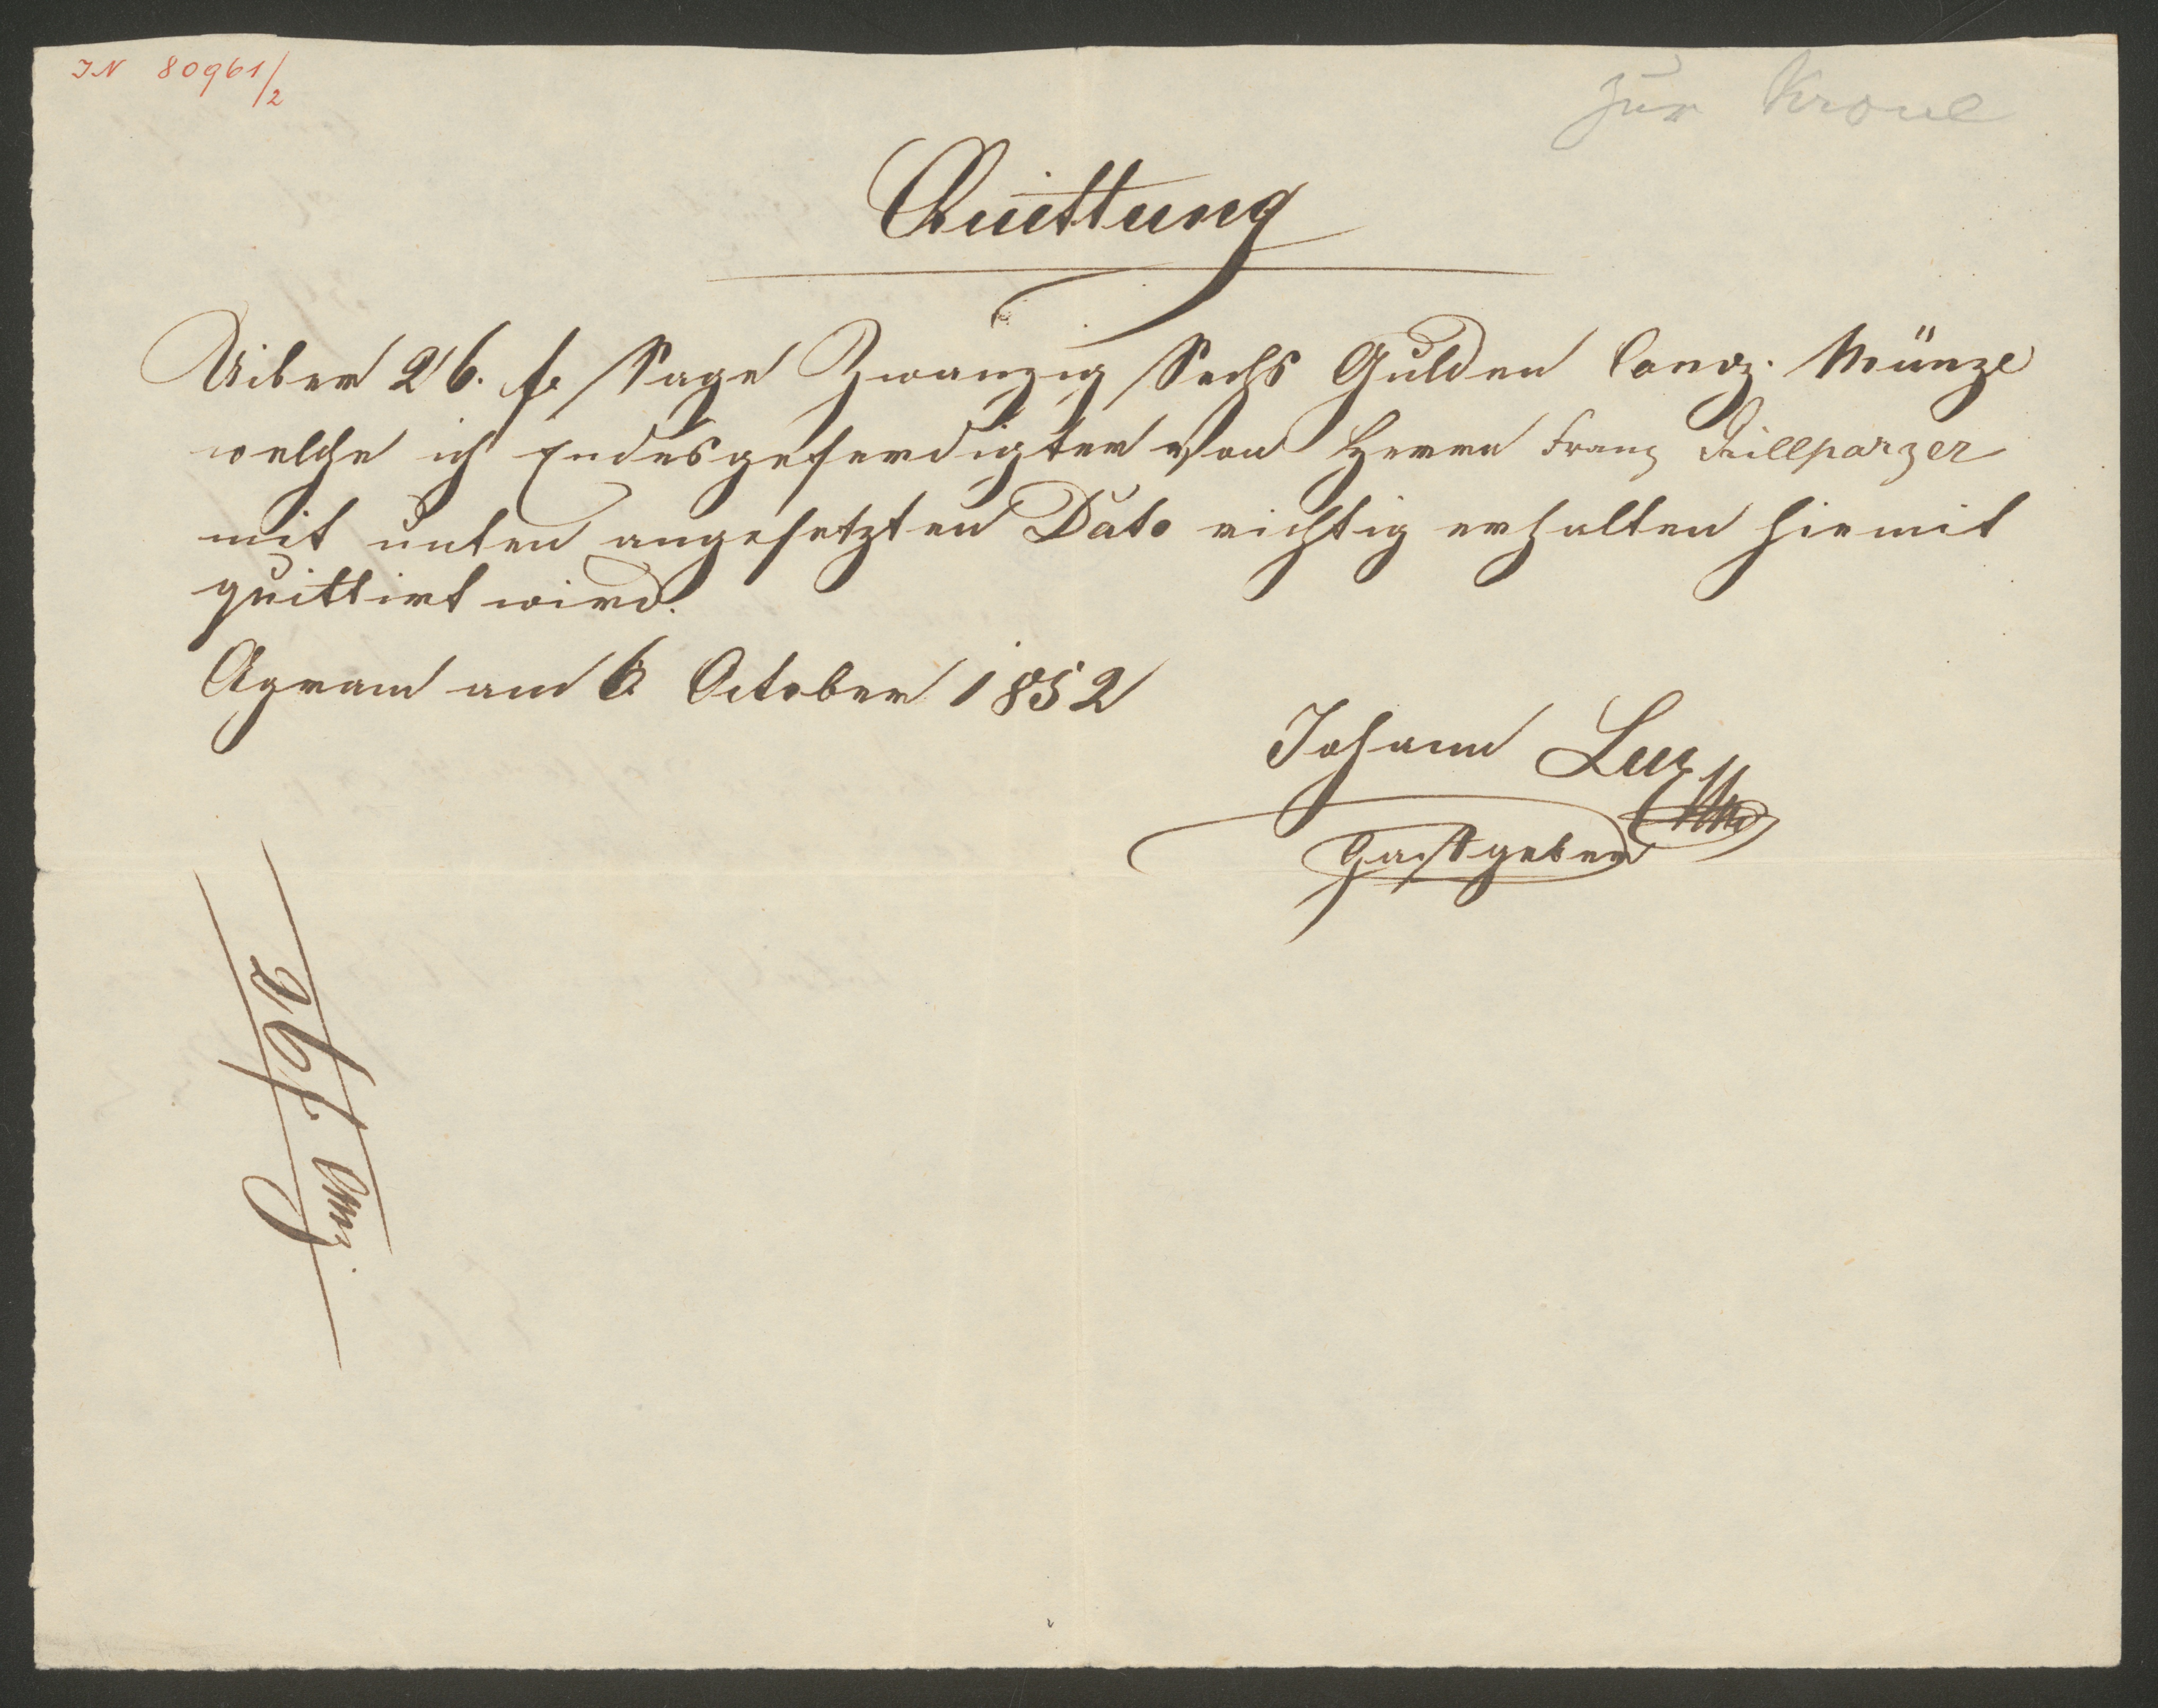 IN 80961/2
zur Krone
Quittung
Uiber 26. f. Sage Zwanzig Sechs Gulden Convz. Münze
welche ich Endesgeferdigter von Herrn Franz Grillparzer
mit unten angesetzten Dato richtig erhalten hiemit
quittirt wird.
Agram am 6 October 1852
Johann Lux
Gastgeber
26 f. CMz.